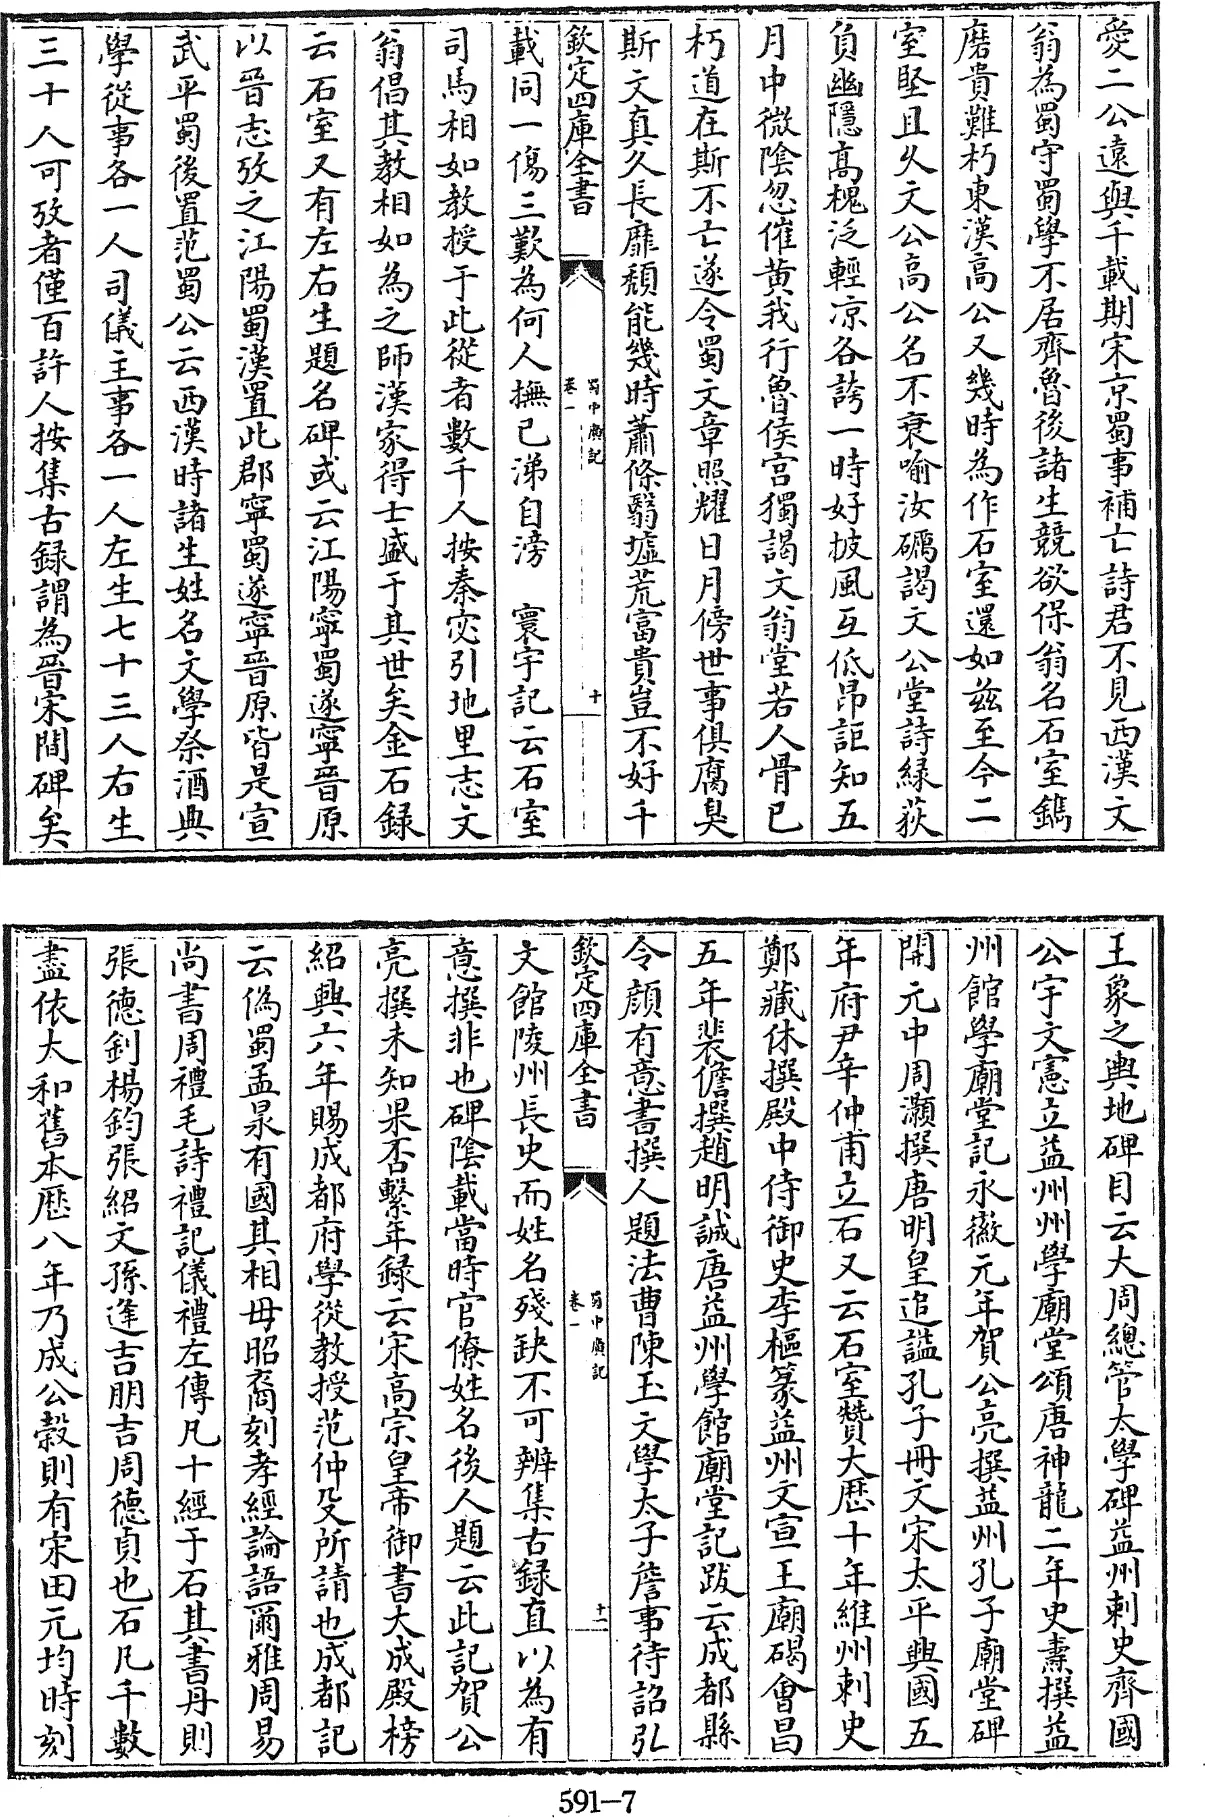 愛二公遠與千載期宋京蜀事補亡詩君不見西漢文
翁為蜀守蜀學不居齊魯後諸生競欲保翁名石室鐫
磨貴難朽東漢高公又幾時為作石室還如兹至今二
室堅且乆文公高公名不衰喻汝礪謁文公堂詩緑荻
負幽隠髙槐泛輕凉各誇一時好披風互低昂詎知五
月中微隂忽催黄我行魯侯宫獨謁文翁堂若人骨已
朽道在斯不亡遂令蜀文章照耀日月傍世事俱腐臭
斯文真久長靡頽能幾時蕭條翳墟荒富貴豈不好千
欽定四庫全書 蜀中廣記 卷一 十
載同一傷三歎為何人撫已涕自滂 寰宇記云石室
司馬相如教授于此從者數千人按秦宓引地里志文
翁倡其教相如為之師漢家得士盛于其世矣金石録
云石室又有左右生題名碑或云江陽寧蜀遂寧晉原
以晉志攷之江陽蜀漢置此郡寧蜀遂寧晉原皆是宣
武平蜀後置范蜀公云西漢時諸生姓名文學祭酒典
學從事各一人司儀主事各一人左生七十三人右生
三十人可攷者僅百許人按集古録謂為晉宋間碑矣
王象之輿地碑目云大周總管太學碑益州刺史齊國
公宇文憲立益州州學廟堂頌唐神龍二年史燾撰益
州館學廟堂記永徽元年賀公亮撰益州孔子廟堂碑
開元中周灝撰唐明皇追諡孔子冊文宋太平興國五
年府尹辛仲甫立石又云石室贊大厯十年維州刺史
鄭藏休撰殿中侍御史李樞篆益州文宣王廟碣會昌
五年裴儋撰趙明誠唐益州學館廟堂記跋云成都縣
令顔有意書撰人題法曹陳玉文學太子詹事待詔弘
欽定四庫全書 蜀中廣記 卷一 十一
文館陵州長史而姓名殘缺不可辨集古録直以為有
意撰非也碑隂載當時官僚姓名後人題云此記賀公
亮撰未知果否繫年録云宋高宗皇帝御書大成殿榜
紹興六年賜成都府學從教授范仲殳所請也成都記
云偽蜀孟㫤有國其相毋昭裔刻孝經論語爾雅周易
尚書周禮毛詩禮記儀禮左傳凡十經于石其書丹則
張德釗楊鈞張紹文孫逢吉朋吉周德貞也石凡千數
盡依太和舊本歴八年乃成公穀則有宋田元均時刻
591—7